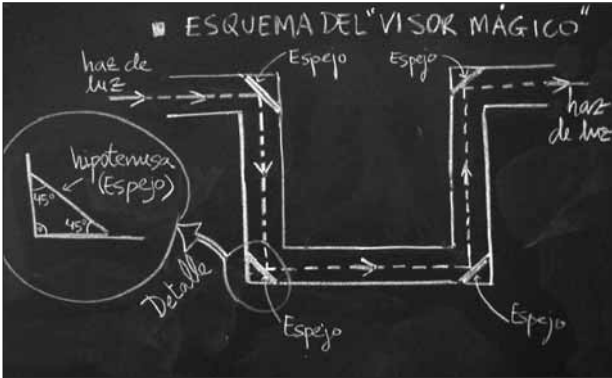 ESQUEMA DEL "VISOR MÁGICO"
haz de
luz
Espejo
Espejo
haz
de luz
hipotenusa
(Espejo)
45°
45°
Detalle
Espejo
Espejo